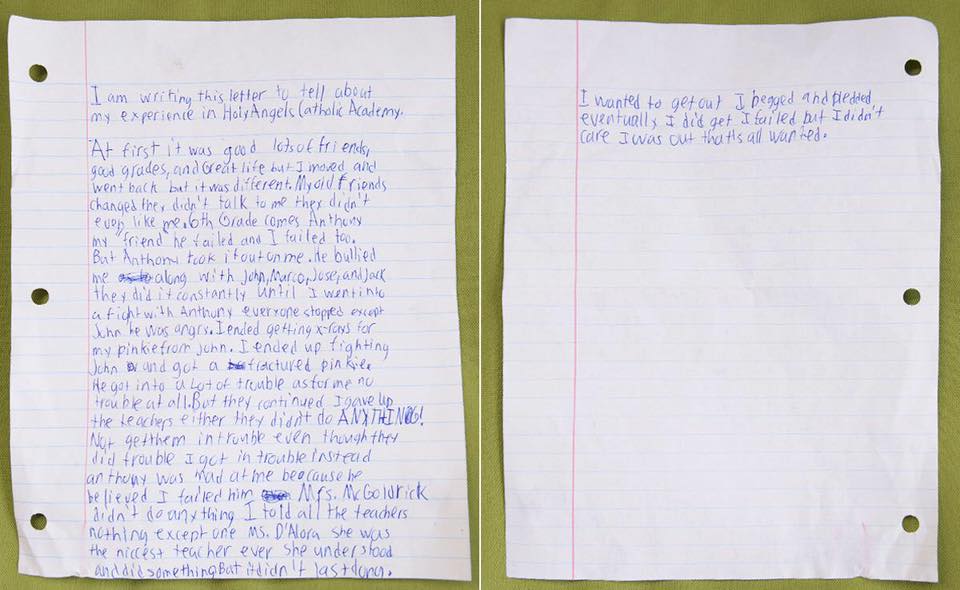 I am writing this letter to tell about
my experience in Holy Angels Catholic Academy.
At first it was good lots of friends,
good grades, and Great life but I moved and
went back but it was different. My old friends
changed they didn't talk to me they didn't
even like me. 6th Grade comes Anthony
my "friend" he failed and I failed too.
But Anthony took it out on me. He bullied
me along with John, Marco, Jose, and Jack
they did it constantly until I went into
a fight with Anthony everyone stopped except
John he was angry. I ended getting x-rays for
my pinkie from John. I ended up fighting
John and got a fractured pinkie.
He got into a Lot of trouble as for me no
trouble at all. But they continued I gave up
the teachers either they didn't do ANYTHING!
Not get them in trouble even though they
did trouble I got in trouble instead
anthony was mad at me beacause he
believed I failed him Mrs. McGoldrick
didn't do anything I told all the teachers
nothing except one Ms. D'Alora she was
the niccest teacher ever she understood
and did something But it didn't last long.
I wanted to get out I begged and pledded
eventually I did get I failed but I didn't
care I was out that's all wanted.